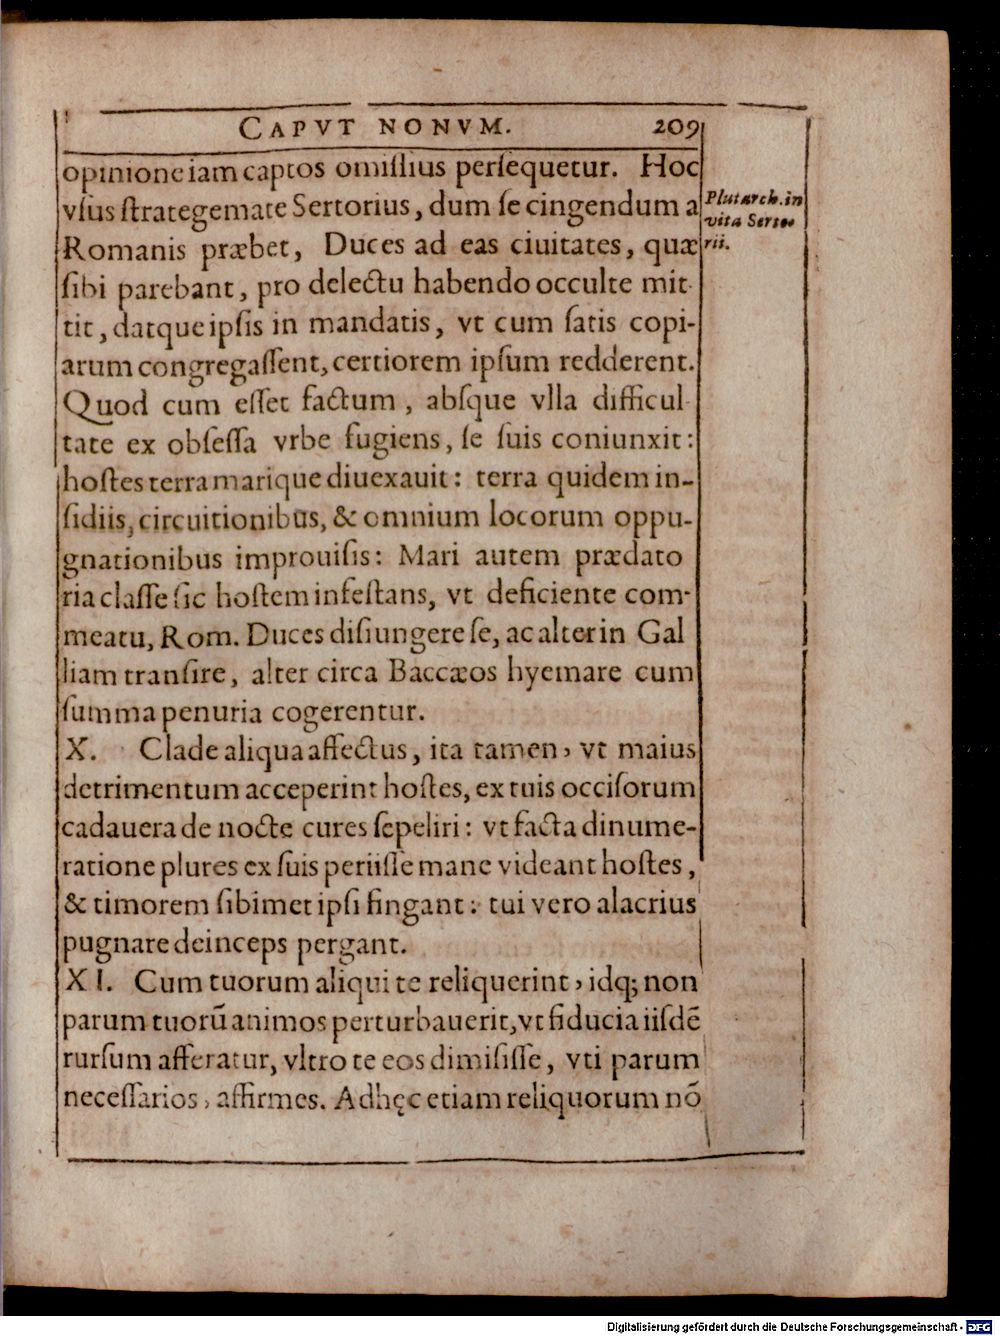 CAPVT NONVM. 209
opinione iam captos omiſſius perſequetur. Hoc
vſus ſtrategemate Sertorius, dum ſe cingendum a
Romanis præbet, Duces ad eas ciuitates, quæ
ſibi parebant, pro delectu habendo occulte mit-
tit, datque ipſis in mandatis, vt cum ſatis copi-
arum congregaſſent, certiorem ipſum redderent.
Quod cum eſſet factum, abſque vlla difficul-
tate ex obſeſſa vrbe fugiens, ſe ſuis coniunxit:
hoſtes terra marique diuexauit: terra quidem in-
ſidiis, circuitionibus, & omnium locorum oppu-
gnationibus improuiſis: Mari autem prædato
ria claſſe ſic hoſtem infeſtans, vt deficiente com-
meatu, Rom. Duces diſiungere ſe, ac alter in Gal
liam tranſire, alter circa Baccæos hyemare cum
ſumma penuria cogerentur.
X. Clade aliqua affectus, ita tamen, vt maius
detrimentum acceperint hoſtes, ex tuis occiſorum
cadauera de nocte cures ſepeliri: vt facta dinume-
ratione plures ex ſuis periiſſe mane videant hoſtes,
& timorem ſibimet ipſi fingant: tui vero alacrius
pugnare deinceps pergant.
XI. Cum tuorum aliqui te reliquerint, idq; non
parum tuorũ animos perturbauerit, vt fiducia iiſdē
rurſum afferatur, vltro te eos dimiſiſſe, vti parum
neceſſarios, affirmes. Adhęc etiam reliquorum nõ
Plutarch. in
vita Serto-
rii.
Digitalisierung gefördert durch die Deutsche Forschungsgemeinschaft - DFG